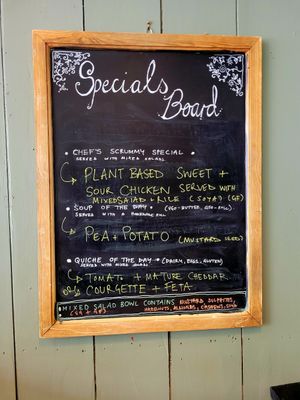 Specials
Board
• CHEF'S SCRUMMY SPECIAL
SERVED WITH MIXED SALAD
PLANT BASED SWEET +
SOUR CHICKEN SERVED WITH
MIXED SALAD + RICE (SOYA) (GF)
• SOUP OF THE DAY •
SERVED WITH A
PEA + POTATO (MUSTARD SEED)
• QUICHE OF THE DAY • (DAIRY, EGGS, GLUTEN)
SERVED WITH MIXED SALAD
TOMATO + MATURE CHEDDAR
COURGETTE + FETA
MIXED SALAD BOWL CONTAINS MUSTARD, SULPHITES,